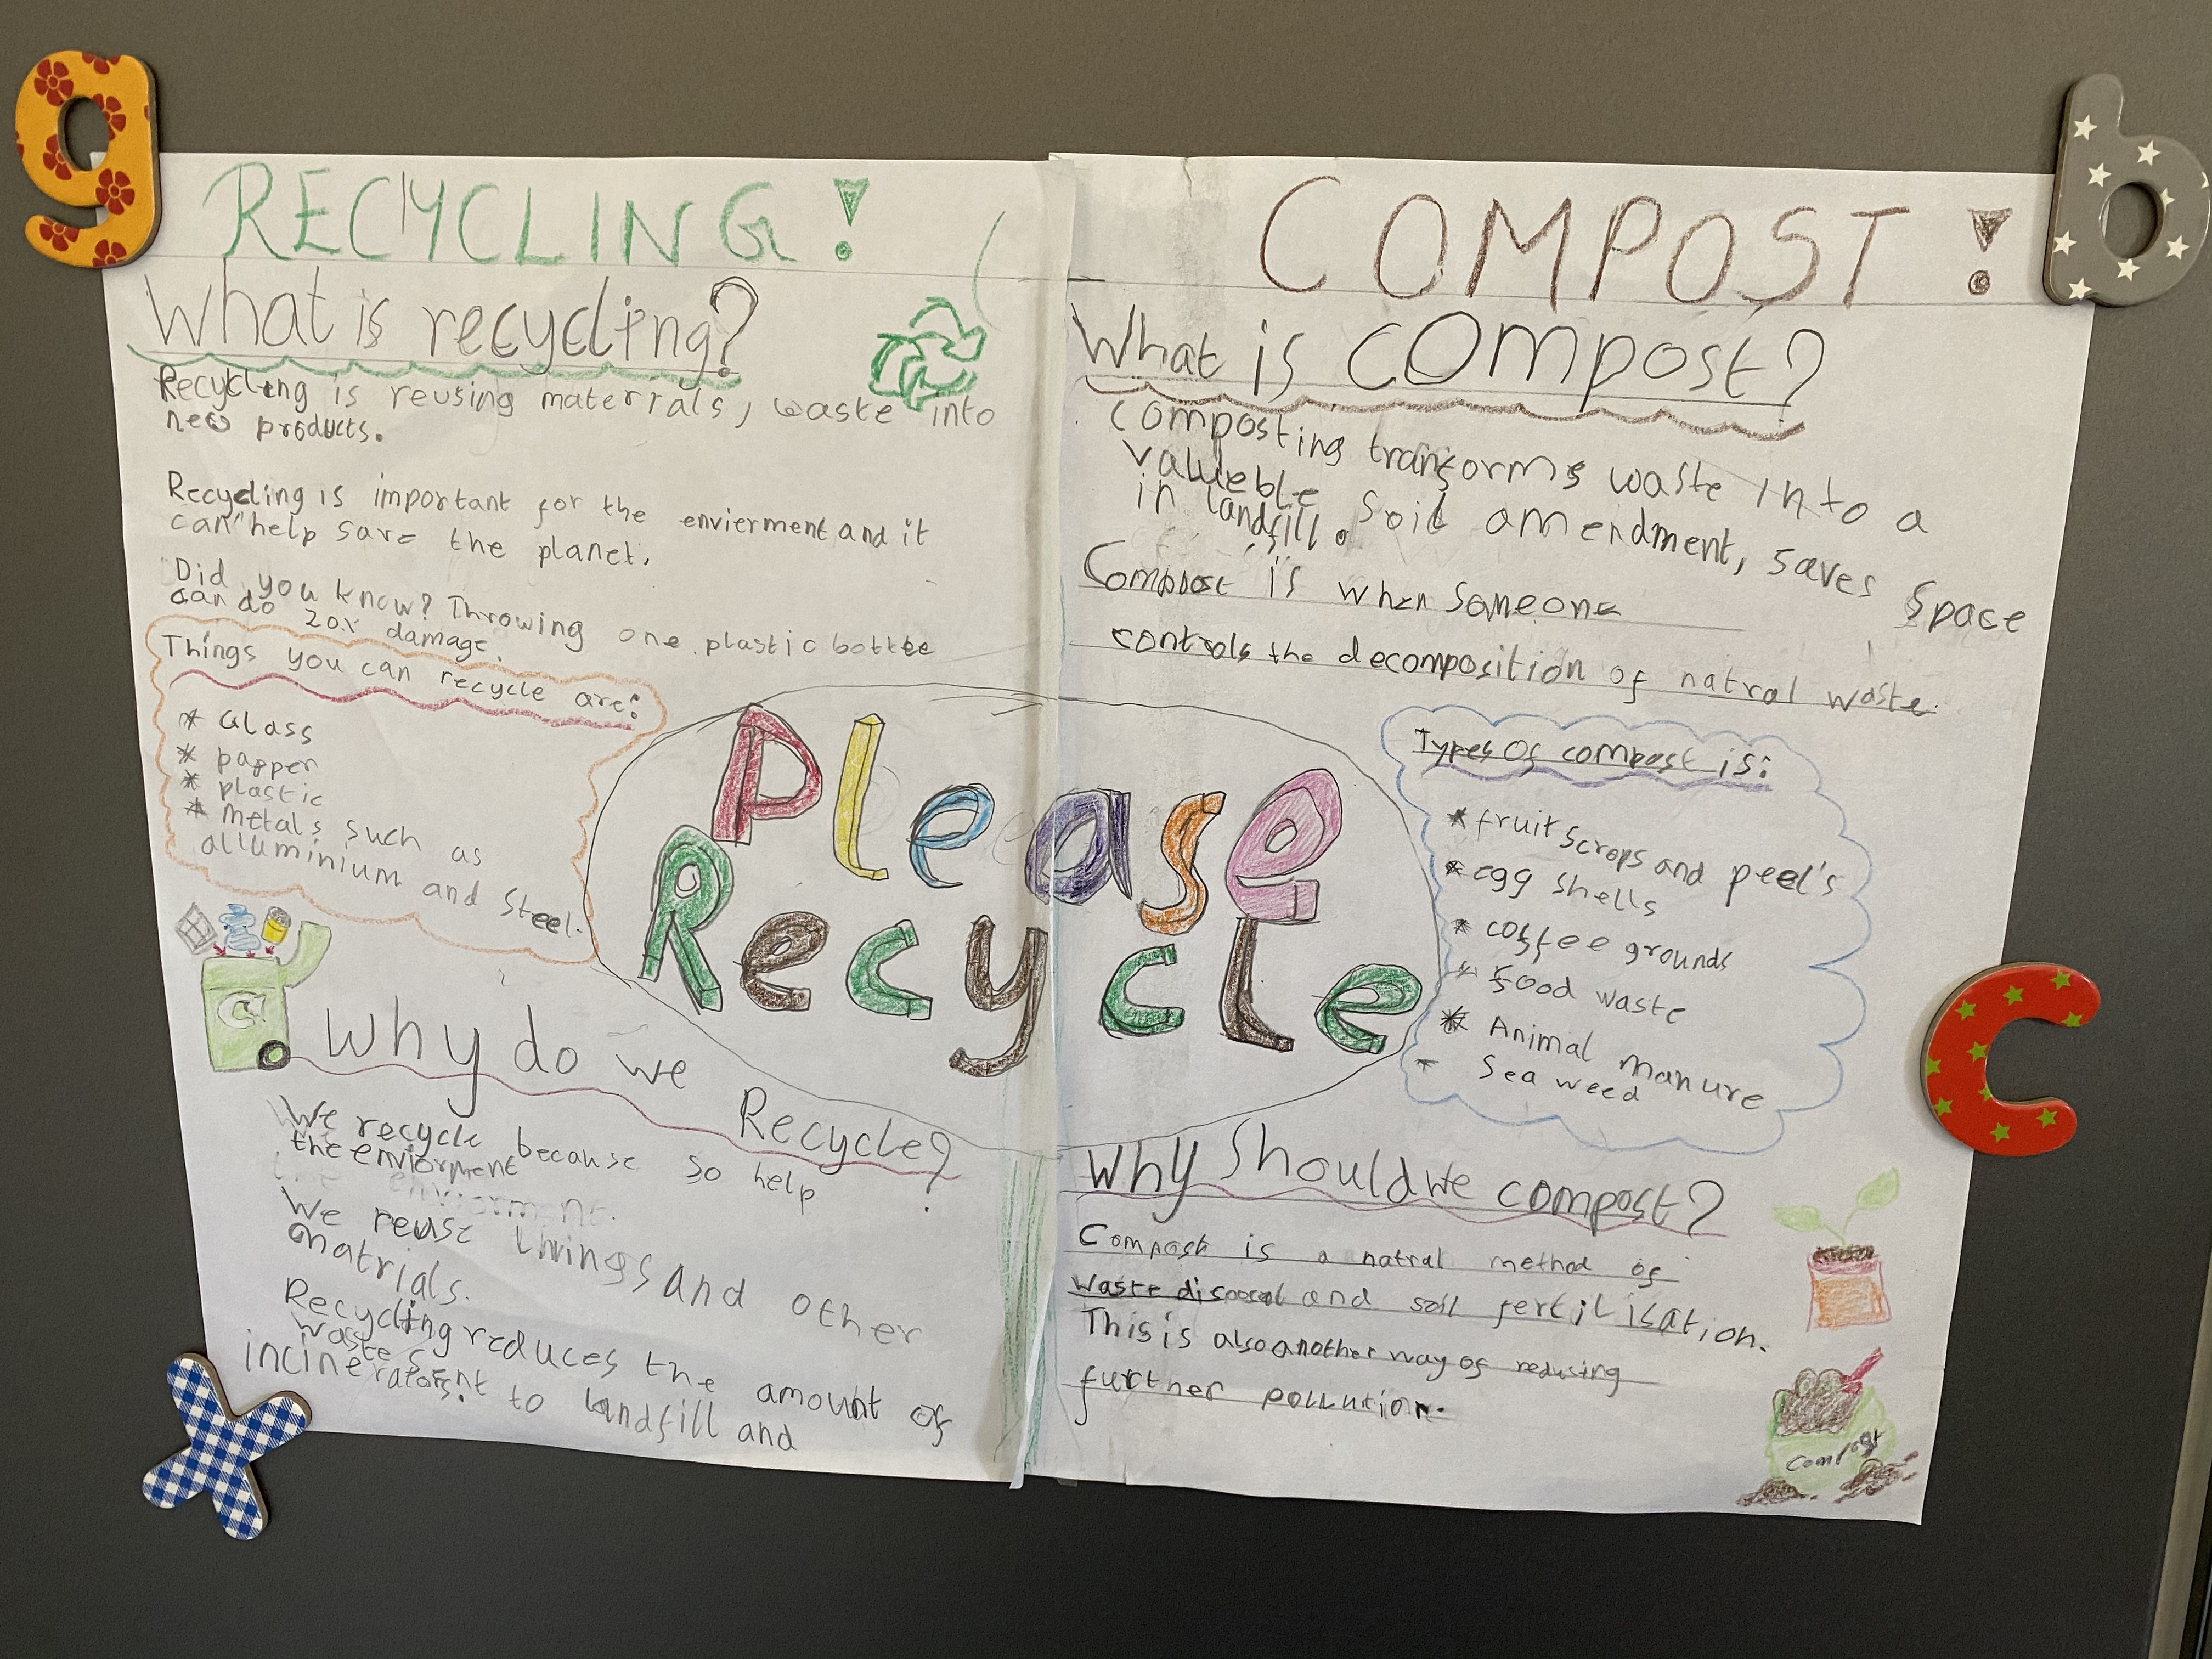 g
b
RECYCLING!
What is recycling?
Recycling is reusing materials, waste into
new products.
Recycling is important for the envierment and it
can help save the planet.
Did you know? Throwing one plastic bottle
can do 20x damage.
Things you can recycle are:
* Glass
* papper
* plastic
* Metals such as
alluminium and Steel.
Please
Recycle
Why do we
Recycle?
We recycle because so help
the enviorment
We reuse things and other
matrials.
Recycling reduces the amount of
waste sent to landfill and
incinerators.
COMPOST!
What is compost?
composting transforms waste into a
valueble soil amendment, saves space
in landfill.
Compost is when someone
controls the decomposition of natral waste.
Types of compost is:
* fruit scrops and peel's
* egg shells
* coffee grounds
* food waste
* Animal manure
- Sea weed
c
Why should we compost?
Compost is a natral method of
waste disposal and soil fertilisation.
This is also another way of redusing
further pollution.
compost
x